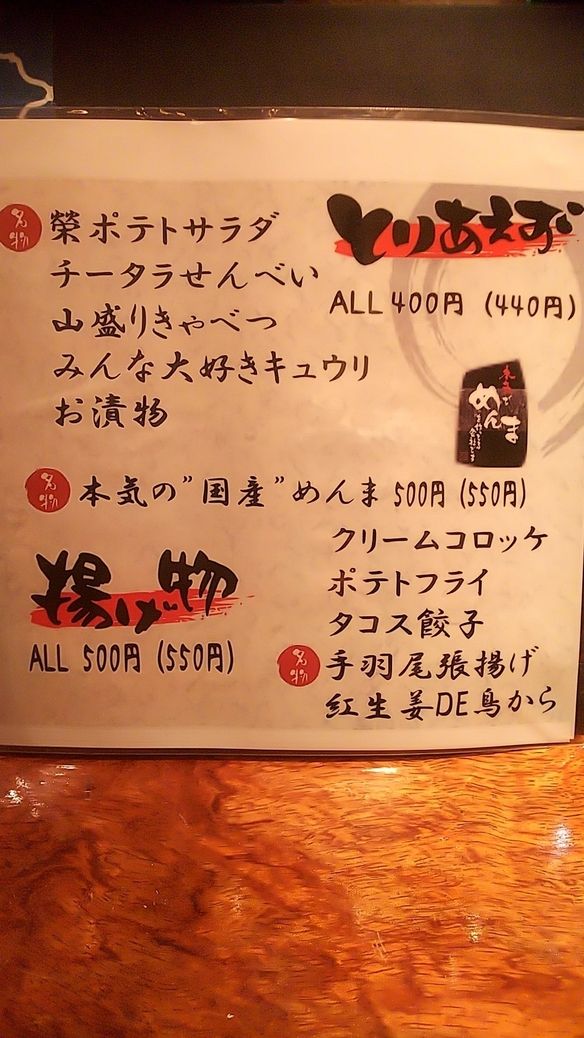 とりあえず
ALL 400円 (440円)
名物
榮ポテトサラダ
チータラせんべい
山盛りきゃべつ
みんな大好きキュウリ
お漬物
めんま
名物
本気の"国産"めんま 500円 (550円)
揚げ物
ALL 500円 (550円)
クリームコロッケ
ポテトフライ
タコス餃子
名物
手羽尾張揚げ
紅生姜DE鳥から